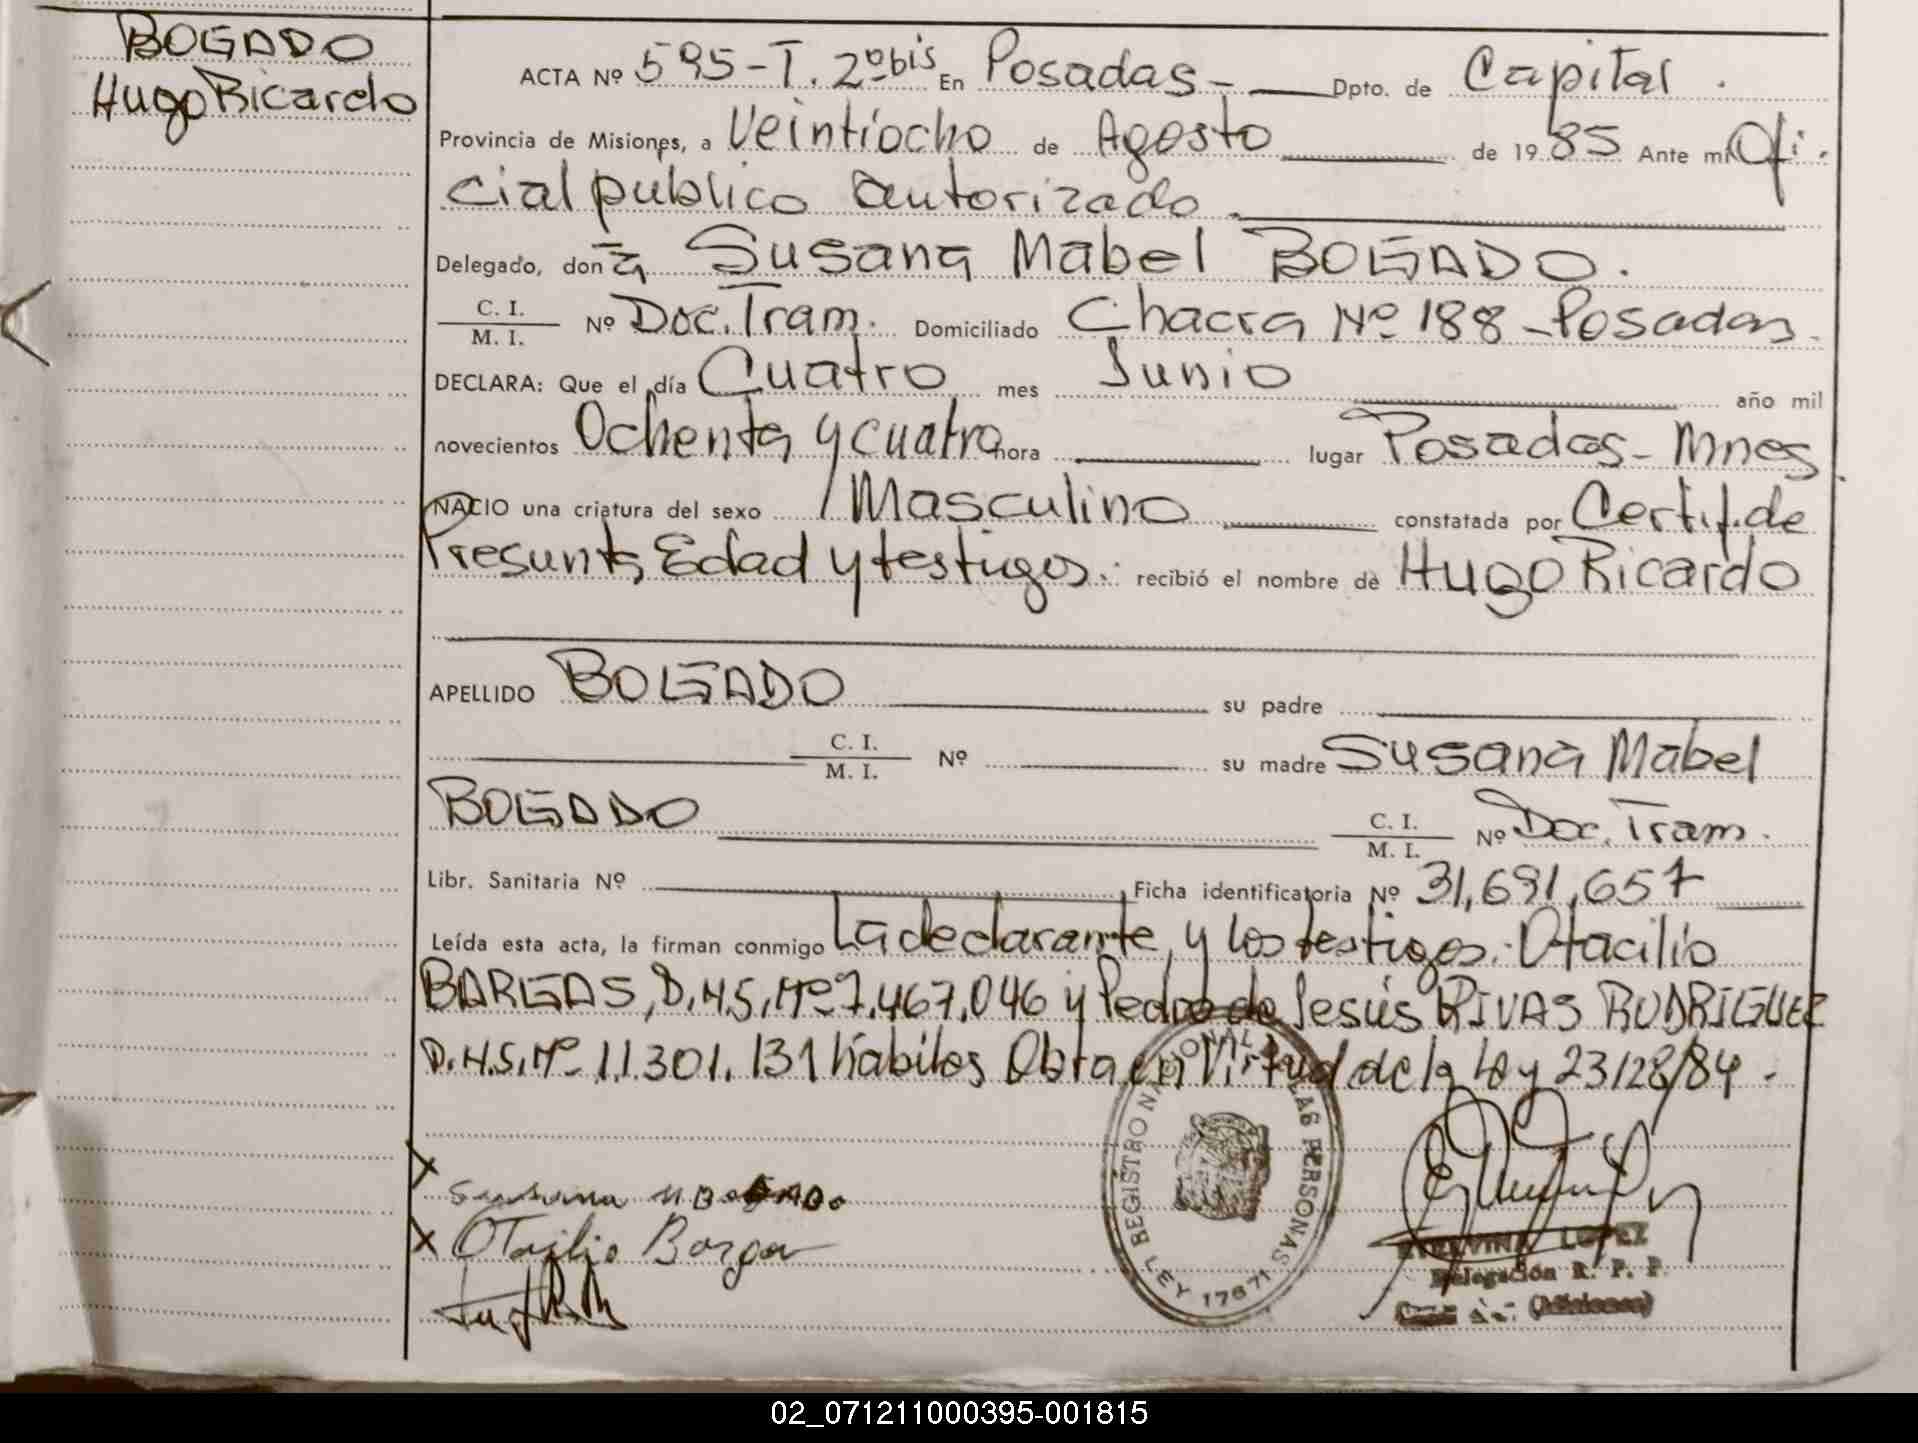 BOGADO
Hugo Ricardo
ACTA Nº 595-T. 2º bis En Posadas - Dpto. de Capital.
Provincia de Misiones, a Veintiocho de Agosto de 1985 Ante mi Ofi.
cial publico autorizado.
Delegado, don a Susana Mabel BOGADO.
C. I.
M. I.
Nº Doc. Tram. Domiciliado Chacra Nº 188 - Posadas.
DECLARA: Que el día Cuatro mes Junio año mil
novecientos Ochenta y cuatro hora lugar Posadas - Mnes.
NACIO una criatura del sexo Masculino constatada por Certif. de
Presunta Edad y testigos. recibió el nombre de Hugo Ricardo
APELLIDO BOGADO su padre
C. I.
M. I.
Nº su madre Susana Mabel
BOGADO
C. I.
M. I.
Nº Doc. Tram.
Libr. Sanitaria Nº Ficha identificatoria Nº 31,691,657
Leída esta acta, la firman conmigo La declarante y los testigos: Otacilio
BARGAS, D.N.I. Nº 7.467.046 y Pedro de Jesús RIVAS RODRIGUEZ
D.N.I. Nº 11.301.131 hábiles Obra en Virtud de la Ley 23128/84.
Susana M BOGADO
Otacilio Bargas
REGISTRO NACIONAL DE LAS PERSONAS
LEY 17671
LOPEZ
Delegación R. P. P.
(Misiones)
02_071211000395-001815